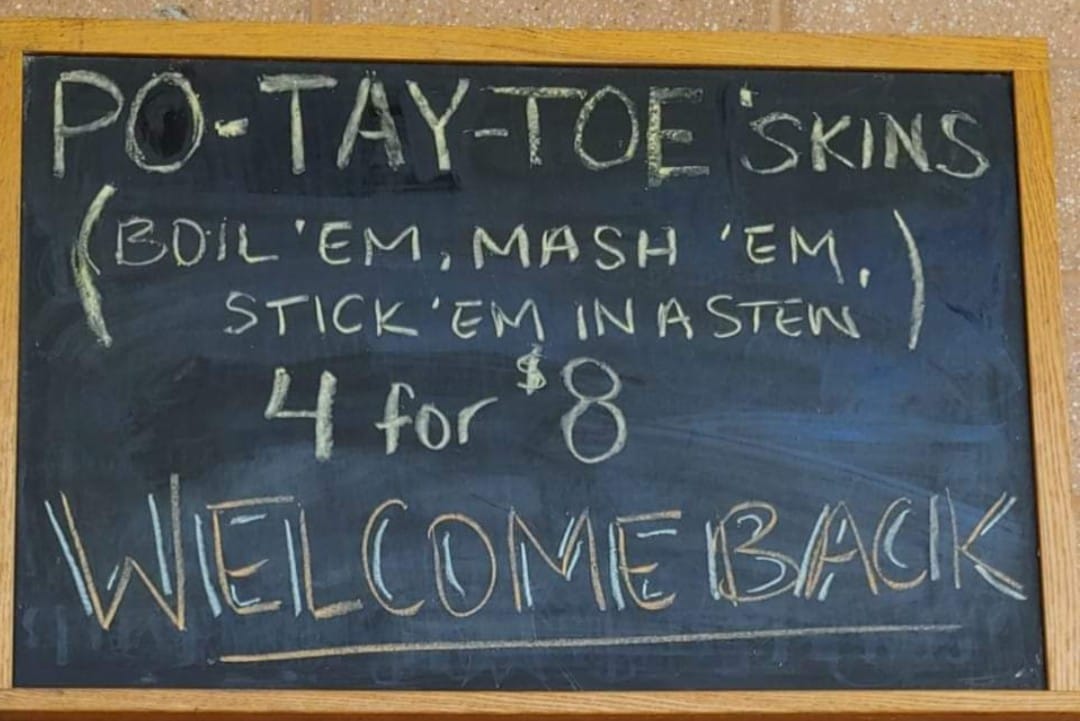 PO-TAY-TOE 'SKINS
(BOIL 'EM, MASH 'EM,
STICK 'EM IN A STEW)
4 for $8
WELCOME BACK